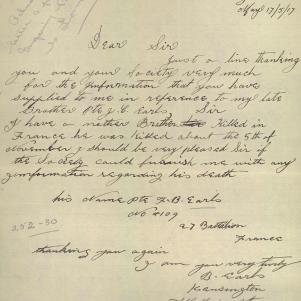 May 17/5/17
Dear Sir
Just a line thanking
you and your Society very much
for the Information that you have
supplied to me in reference to my late
Brother Pte J. C. Earls, Sir
I have a nother Brother Killed in
France he was Killed about the 5th of
November I should be very pleased Sir if
the Society could furnish me with any
information regarding his death
his Name Pte F. B. Earls
No 2109
27 Battalion
France
252-30
thanking you again
I am yours truly
B. Earls
Kensington